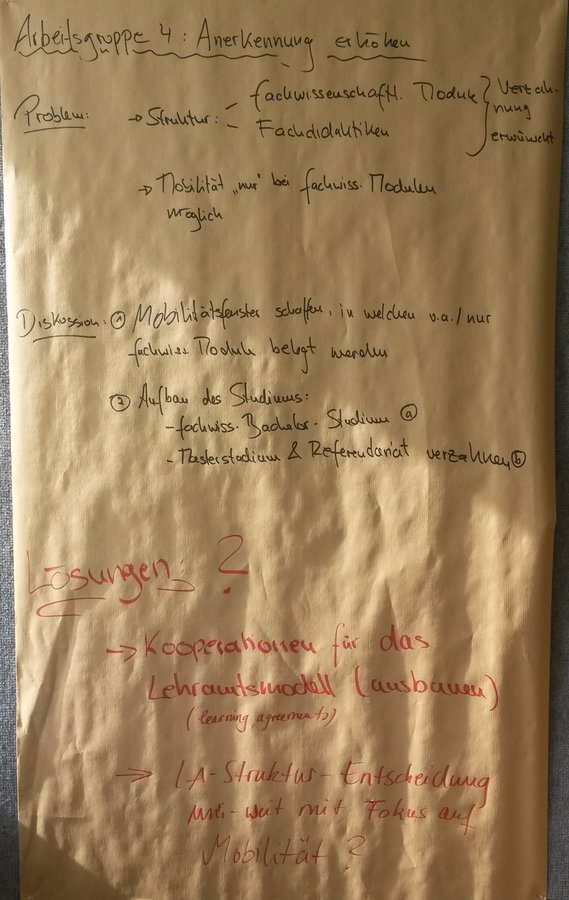 Arbeitsgruppe 4: Anerkennung erhöhen
Problem: → Struktur: - fachwissenschaftl. Module
- Fachdidaktiken
} Verzah-
nung
erwünscht
→ Mobilität „nur" bei fachwiss. Modulen
möglich
Diskussion: ① Mobilitätsfenster schaffen, in welchen v.a./nur
fachwiss. Module belegt werden
② Aufbau des Studiums:
- fachwiss. Bachelor-Studium ⓐ
- Masterstudium & Referendariat verzahnen ⓑ
Lösungen: ?
→ Kooperationen für das
Lehramtsmodell (ausbauen)
(learning agreements)
→ LA-Struktur-Entscheidung
uni-weit mit Fokus auf
Mobilität?